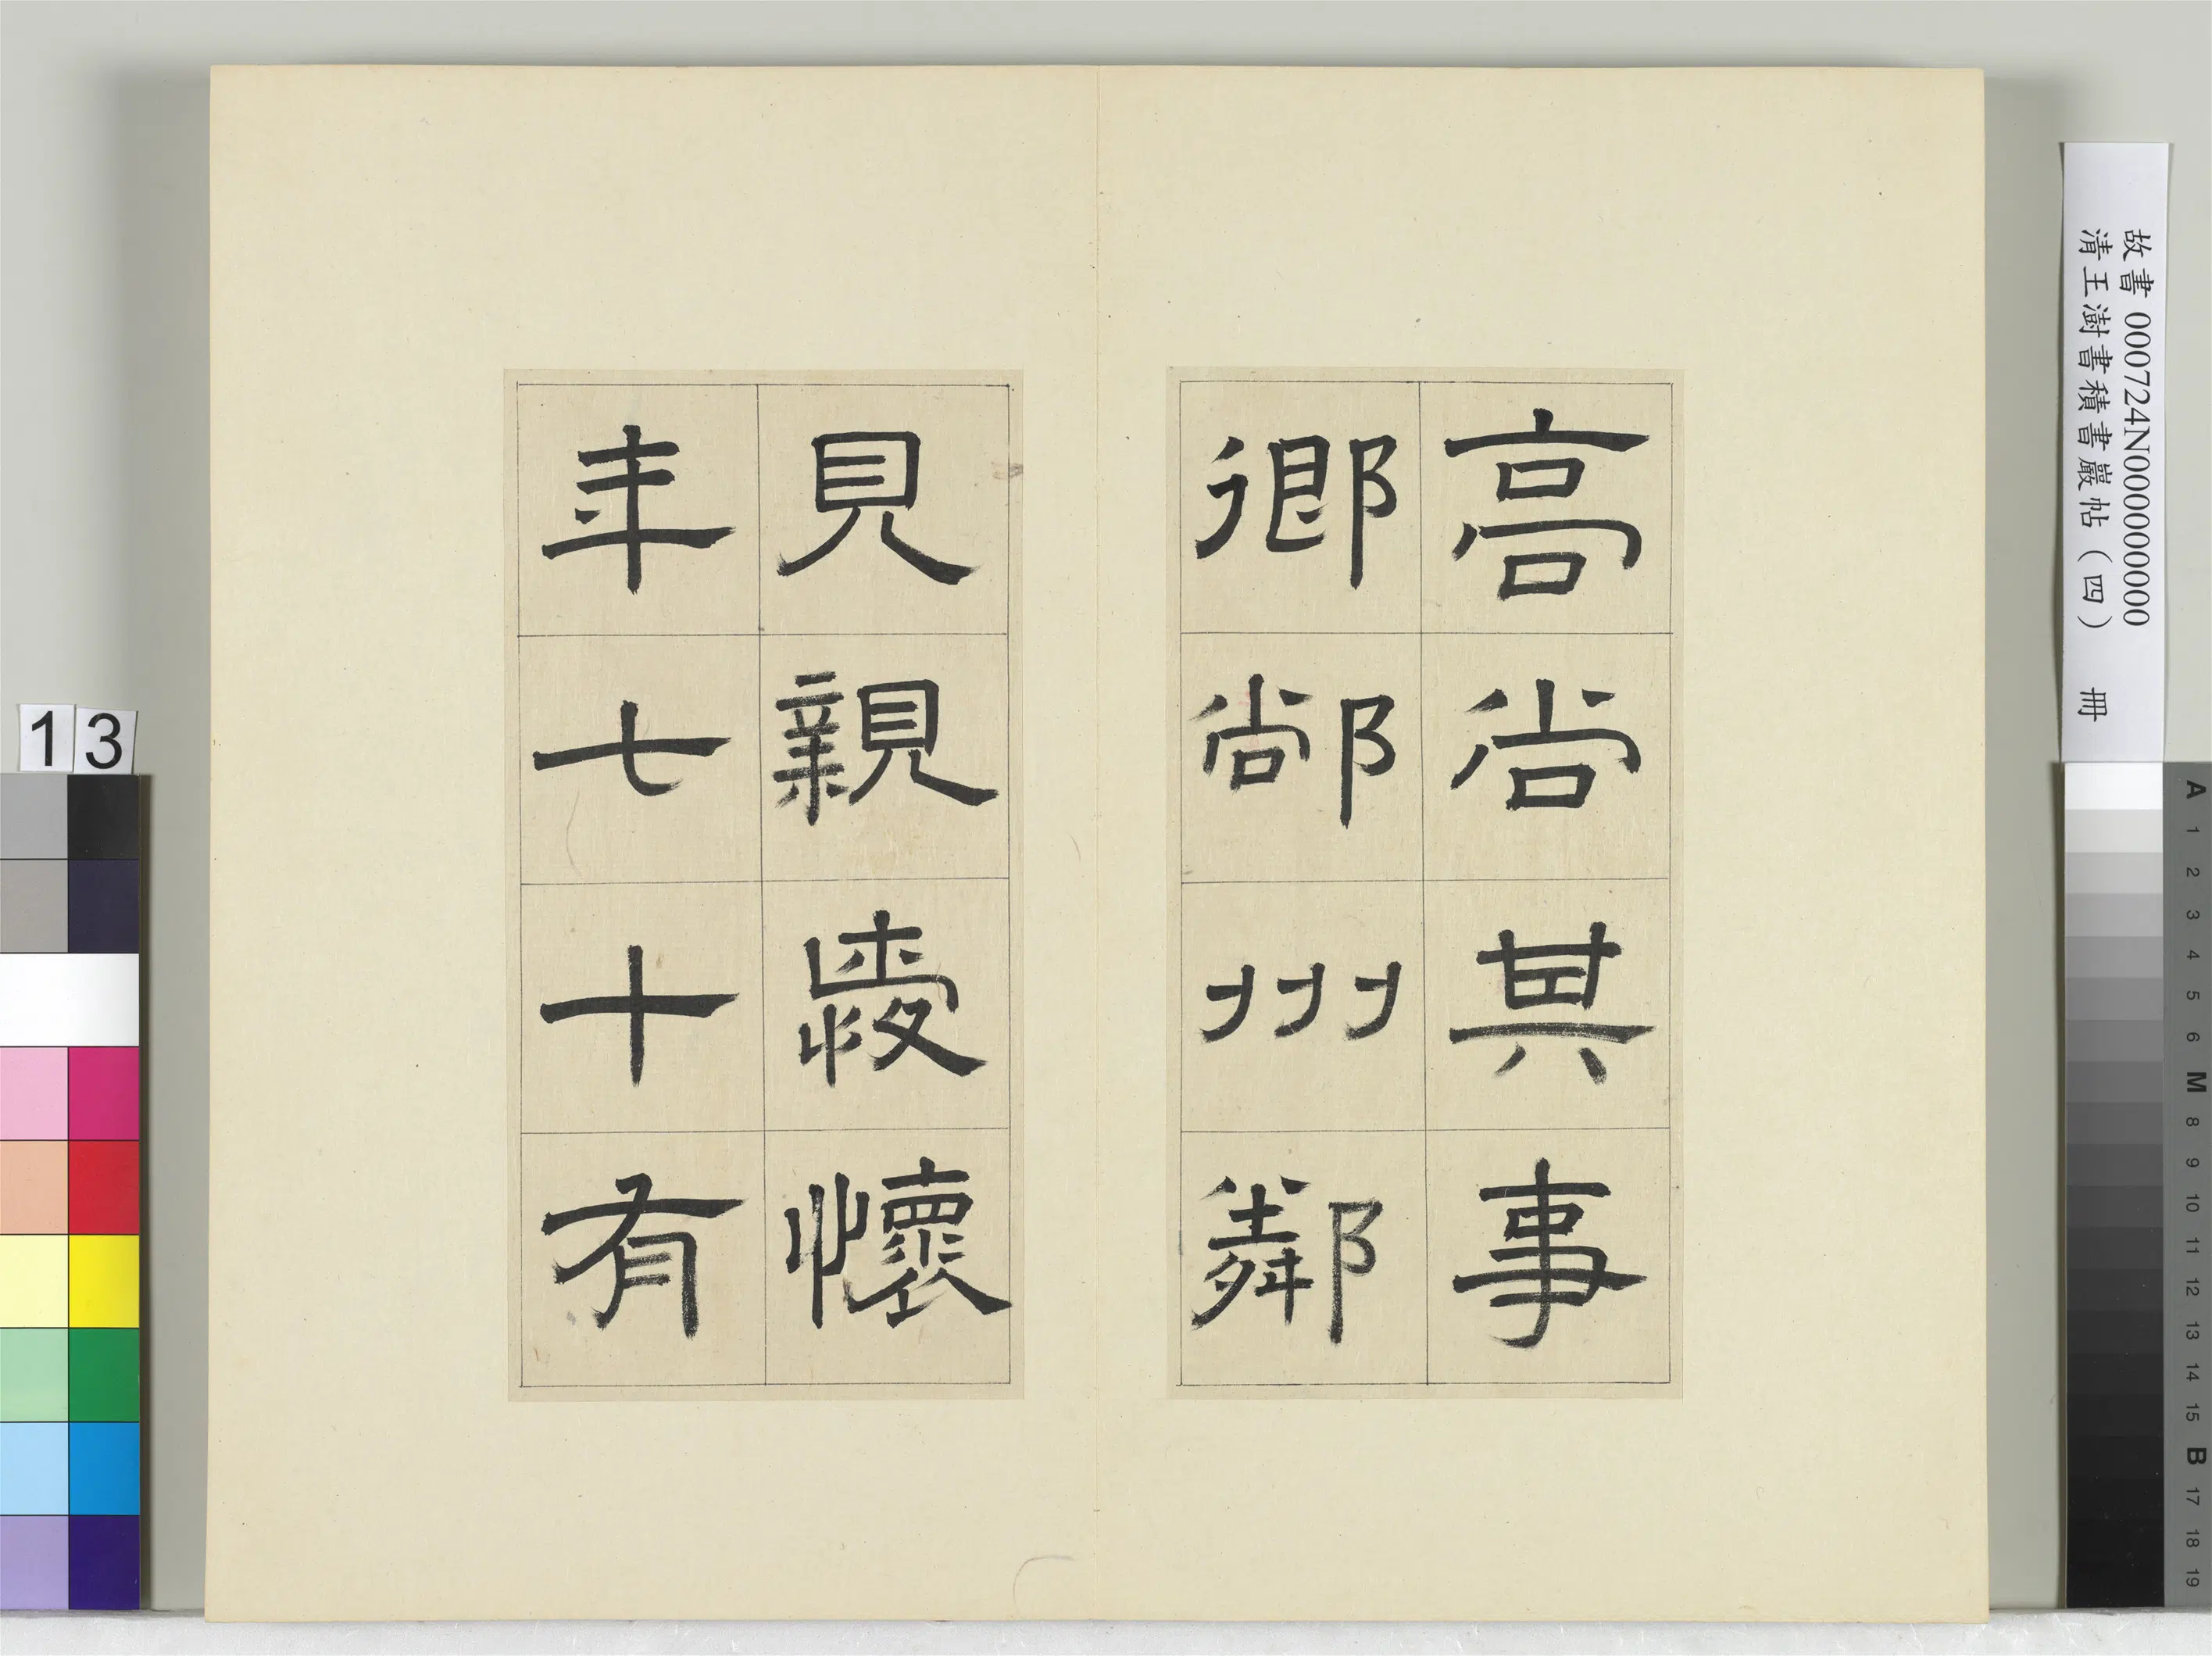 高尚其事
鄉䣊州鄰
見親愛懷
年七十有
故書 000724N000000000
清王澍書積書巖帖（四） 冊
13
A 1 2 3 4 5 6 M 8 9 10 11 12 13 14 15 B 17 18 19